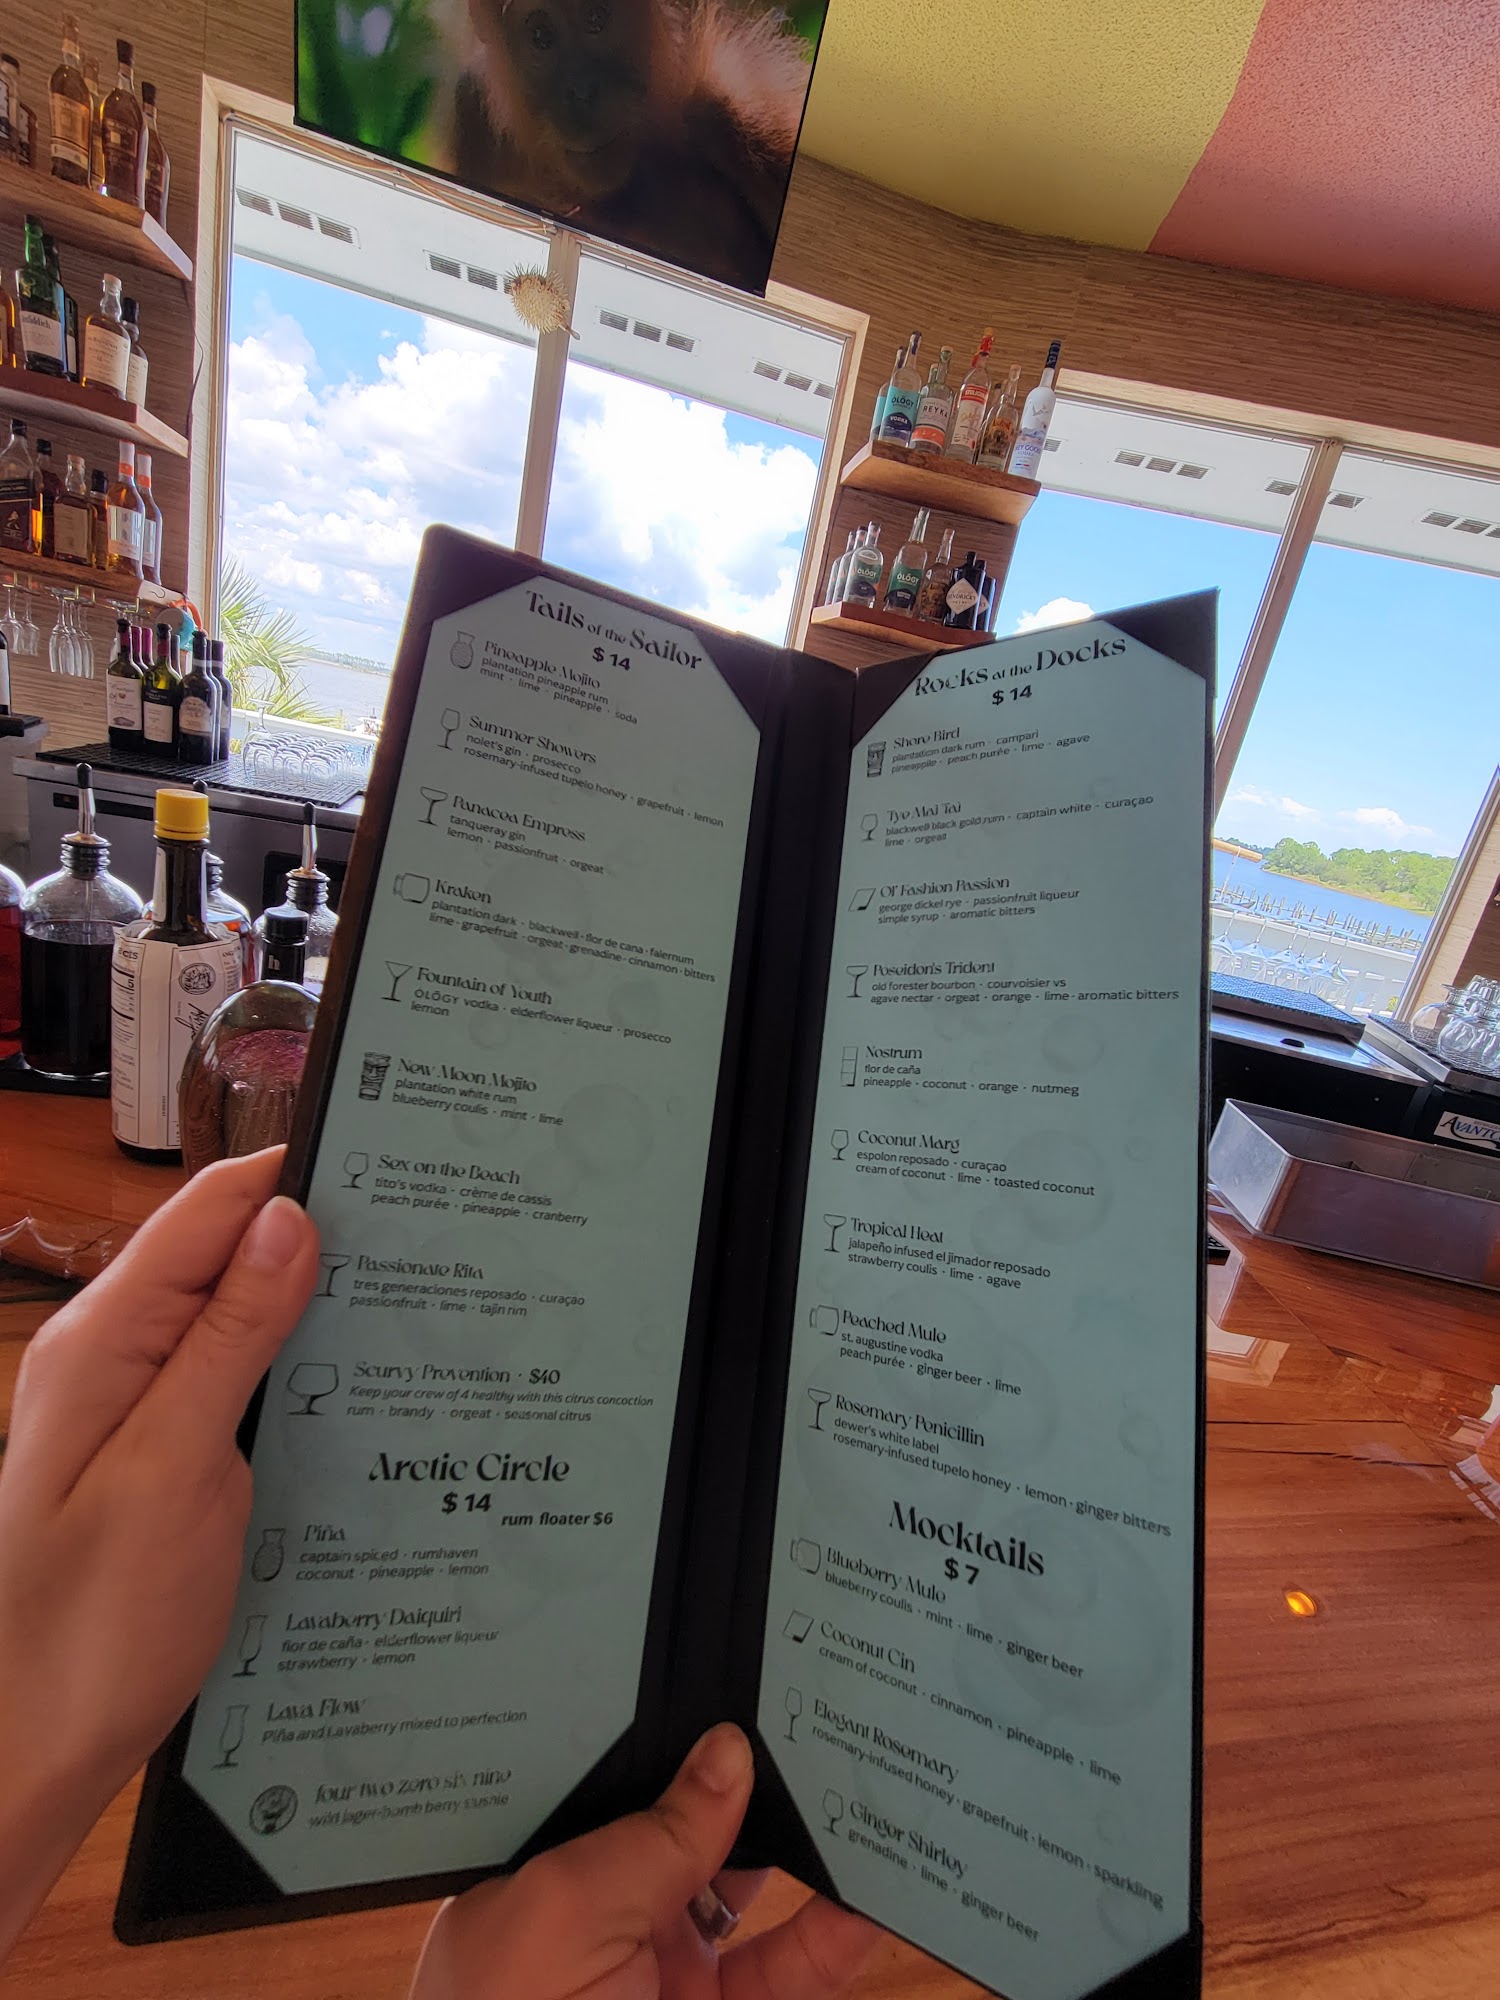 Tails of the Sailor
$ 14
Pineapple Mojito
plantation pineapple rum
mint · lime · pineapple · soda
Summer Showers
nolet's gin · prosecco
rosemary-infused tupelo honey · grapefruit · lemon
Panacea Empress
tanqueray gin
lemon · passionfruit · orgeat
Kraken
plantation dark · blackwell · flor de cana · falernum
lime · grapefruit · orgeat · grenadine · cinnamon · bitters
Fountain of Youth
ŌLŌGY vodka · elderflower liqueur · prosecco
lemon
New Moon Mojito
plantation white rum
blueberry coulis · mint · lime
Sex on the Beach
tito's vodka · crème de cassis
peach purée · pineapple · cranberry
Passionate Rita
tres generaciones reposado · curaçao
passionfruit · lime · tajin rim
Scurvy Prevention · $40
Keep your crew of 4 healthy with this citrus concoction
rum · brandy · orgeat · seasonal citrus
Arctic Circle
$ 14
rum floater $6
Piña
captain spiced · rumhaven
coconut · pineapple · lemon
Lavaberry Daiquiri
flor de caña · elderflower liqueur
strawberry · lemon
Lava Flow
Piña and Lavaberry mixed to perfection
four two zero six nine
wild jager-bomb berry slushie
Rocks at the Docks
$ 14
Shore Bird
plantation dark rum · campari
pineapple · peach purée · lime · agave
Tye Mai Tai
blackwell black gold rum · captain white · curaçao
lime · orgeat
Ol' Fashion Passion
george dickel rye · passionfruit liqueur
simple syrup · aromatic bitters
Poseidon's Trident
old forester bourbon · courvoisier vs
agave nectar · orgeat · orange · lime · aromatic bitters
Nostrum
flor de caña
pineapple · coconut · orange · nutmeg
Coconut Marg
espolon reposado · curaçao
cream of coconut · lime · toasted coconut
Tropical Heat
jalapeño infused el jimador reposado
strawberry coulis · lime · agave
Peached Mule
st. augustine vodka
peach purée · ginger beer · lime
Rosemary Penicillin
dewer's white label
rosemary-infused tupelo honey · lemon · ginger bitters
Mocktails
$ 7
Blueberry Mule
blueberry coulis · mint · lime · ginger beer
Coconut Cin
cream of coconut · cinnamon · pineapple · lime
Elegant Rosemary
rosemary-infused honey · grapefruit · lemon · sparkling
Ginger Shirley
grenadine · lime · ginger beer
ŌLŌGY
VODKA
REYKA
GREY GOOSE
ŌLŌGY
ŌLŌGY
HENDRICK'S